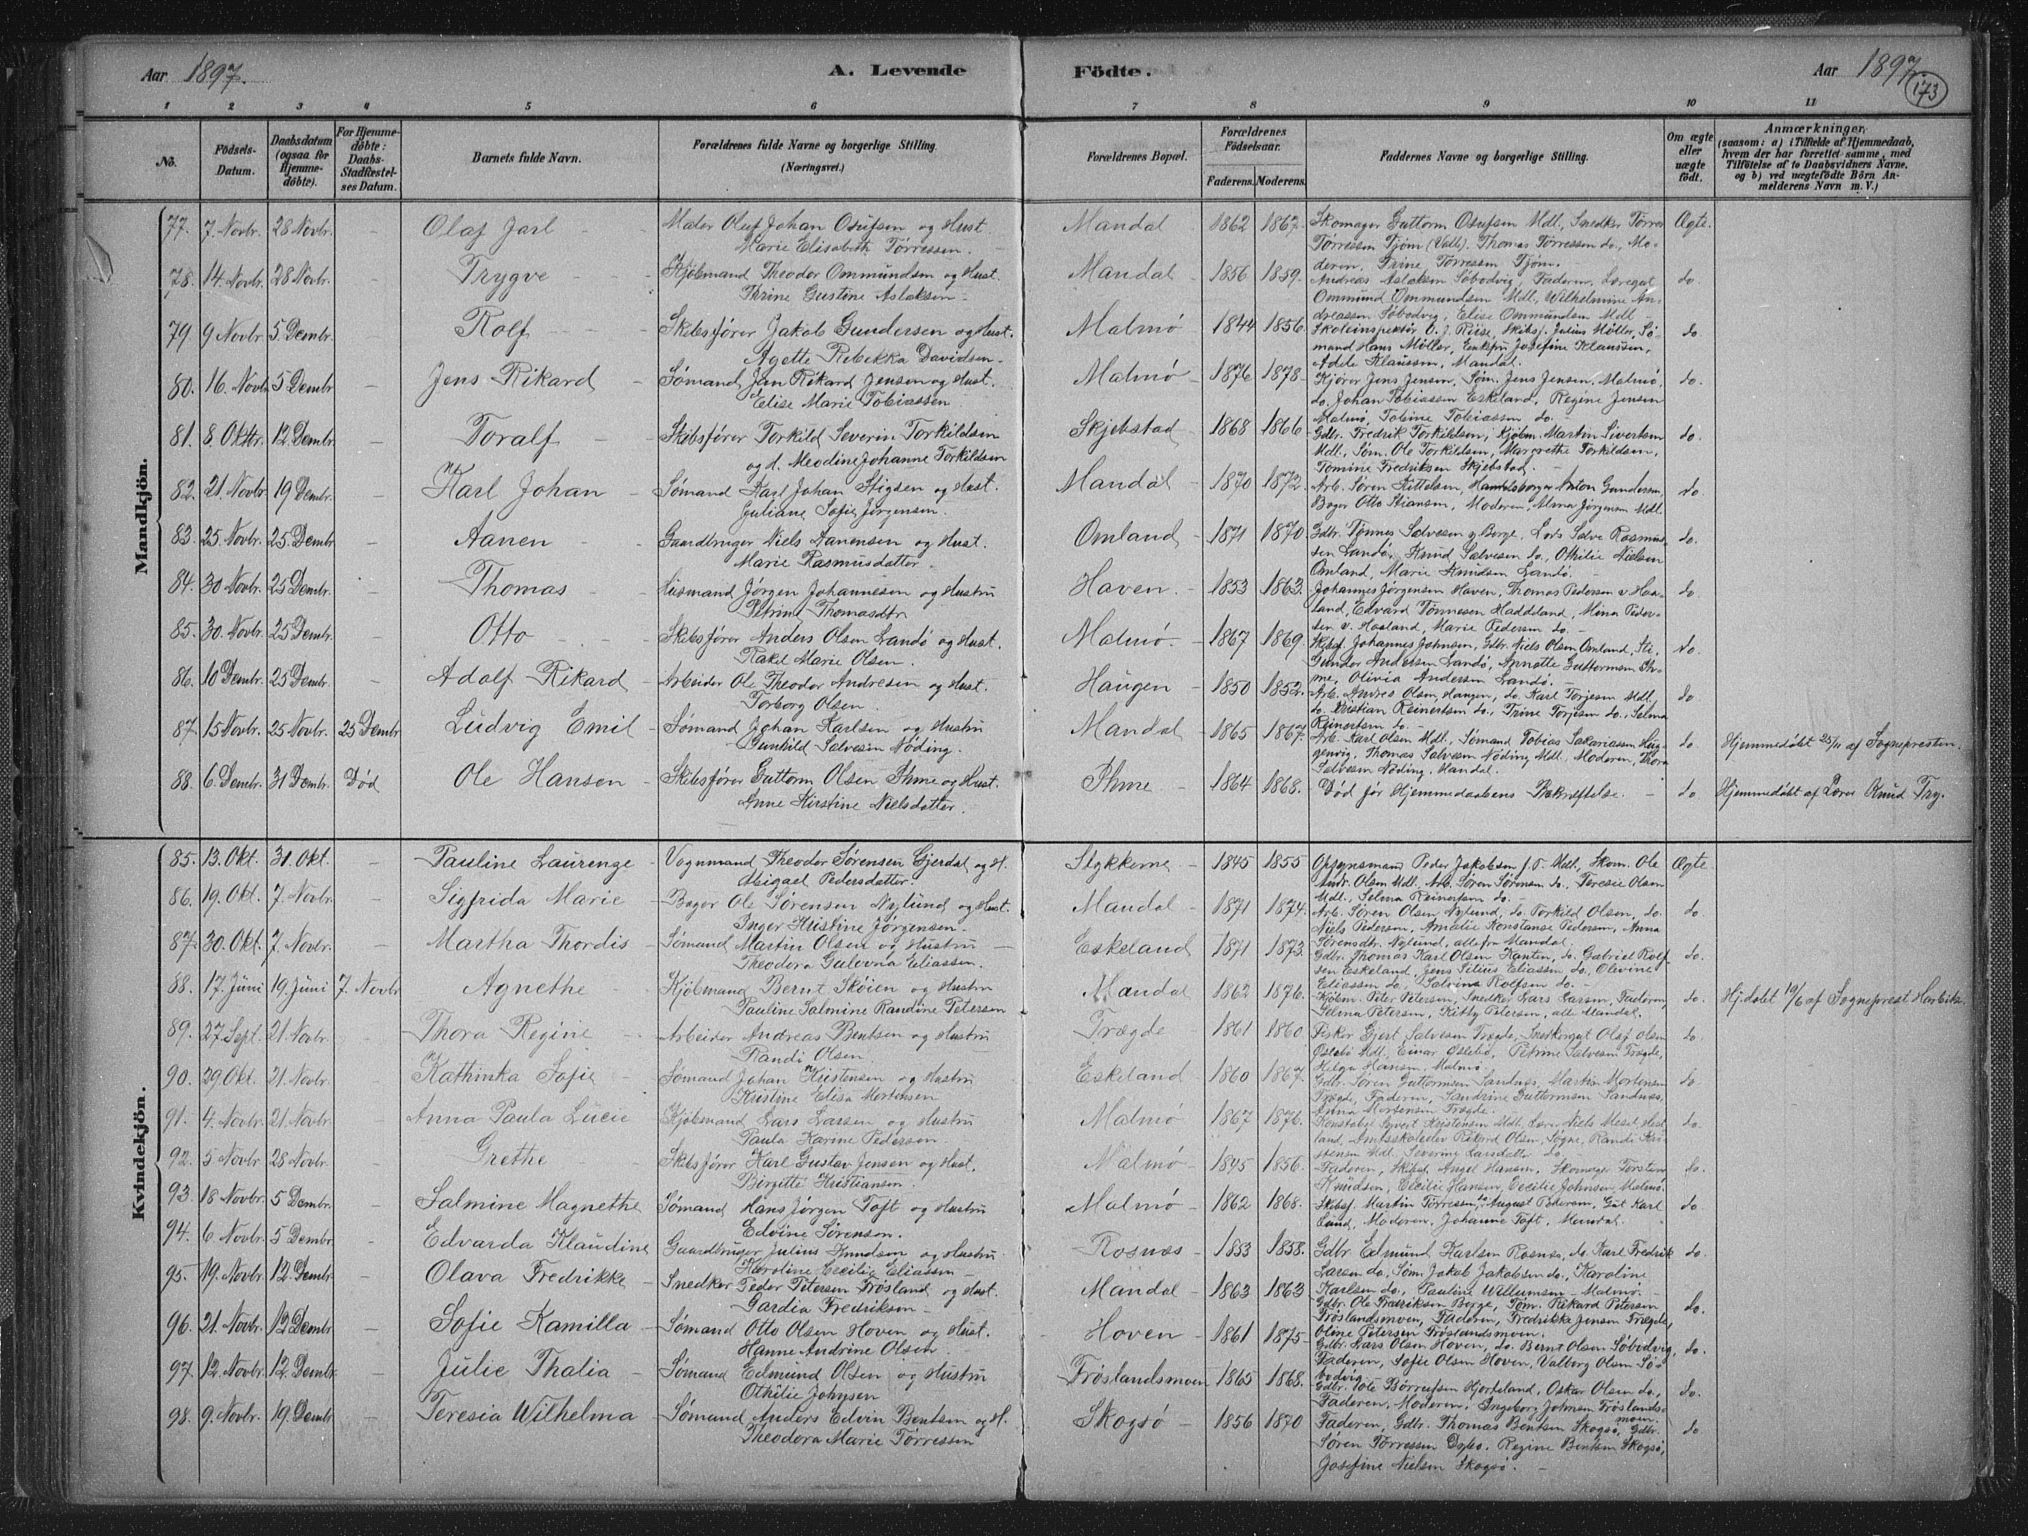 Aar 1897. A. Levende Födte. Aar 1897.
173
1 2 3 4 5 6 7 8 9 10 11
Nö. Födsels-Datum. Daabsdatum (ogsaa for Hjemmedöbte). For Hjemmedöbte: Daabs-Stadfæstelses Datum. Barnets fulde Navn. Forældrenes fulde Navne og borgerlige Stilling. (Næringsvei.) Forældrenes Bopæl. Forældrenes Födselsaar. Faderens. Moderens. Faddernes Navne og borgerlige Stilling. Om ægte eller uægte födt. Anmærkninger, (saasom: a) i Tilfælde af Hjemmedaab, hvem der har forrettet samme, med Tilföielse af to Daabsvidners Navne, og b) ved uægtefödte Börn Anmelderens Navn m. V.)
Mandkjön.
77. 7. Novbr. 28 Novbr. - Olaf Jarl Maler Oluf Johan Osufsen og Hust. Mandal 1862 1867. Skomager Guttorm Osufsen Mdl, Snedker Tørres Ægte.
Marie Elisabeth Tørressen. Tørressen Tjøm (Valle). Thomas Tørressen do., Mo-
78. 14. Novbr. 28 Novbr. - Trygve Kjøbmand Theodor Ommundsen og Hust. Mandal 1856 1859. deren, Trine Tørressen Tjøm.
Thrine Gustine Aslaksen Andreas Aslaksen Søbodvig, Faderen, do.
Ommund Ommundsen Mdl, Wilhelmine An-
79 9 Novbr. 5 Dembr. - Rolf Skibsfører Jakob Gundersen og Hust. Malmø 1844 1856. dreassen Søbodvig, Elise Ommundsen Mdl
Agette Rebekka Davidsen Skoleinspektør O. J. Riise, Skibsf. Julius Møller, Sø- do
mand Hans Møller, Enkefru Josefine Klaussen,
80. 16. Novbr 5 Dembr. - Jens Rikard Sømand Jan Rikard Jensen og Hust. Malmø 1876 1878. Adele Klaussen, Mandal.
Elise Marie Tobiassen Jens Jensen, Søm. Jens Jensen, Malmø, do.
do. Johan Tobiassen Eskeland, Regine Jensen
81. 8 Oktbr. 12 Dembr. - Toralf Skibsfører Torkild Severin Torkildsen Skjebstad 1868 1866. Malmø, Tobine Tobiassen do.
og d. Meodine Johanne Torkildsen Gdbr. Fredrik Torkildsen, Kjøbm. Martin Sivertsen do.
Mdl., Søm. Ole Torkildsen, Margrethe Torkildsen,
82. 21. Novbr. 19 Dembr. - Karl Johan Sømand Karl Johan Stigsen og Hust. Mandal 1870 1872. Tomine Fredriksen Skjebstad.
Juliane Sofie Jørgensen. Arb. Søren Kittelsen, Anton Gundersen, do
Bager Otto Moderen, Alma Jørgensen Mdl.
83. 25. Novbr. 25 Dembr. - Aanen Gaardbruger Niels Aanensen og Hust. Omland 1871 1870 Gdbr. Tønnes Salvesen Berge, Lods Salve Rasmus- do.
Marie Rasmusdatter. sen Landø, Knud Salvesen do, Othilie Nielsen
84. 30 Novbr. 25 Dembr. - Thomas Husmand Jørgen Johannesen og Hustru Haven. 1853 1863. Omland, Marie Knudsen Landø.
Petrine Thomasdtr Johannes Jørgensen Haven, Thomas Pedersen v. Haa- do.
land, Edvard Tønnesen Haddeland, Mina Peder-
85. 30. Novbr. 25 Dembr. - Otto Skibsfører Anders Olsen Landø og Hust. Malmø. 1867 1869. sen v. Haaland, Marie Pedersen do.
Rakel Marie Olsen. Skibsf. Johannes Johnsen, Gdbr. Niels Olsen Omland, do.
Gundor Andersen Landø, Annette Guttormsen
86. 10 Dembr. 25 Dembr. - Adolf Rikard Arbeider Ole Theodor Andresen og Hust. Haugen 1850 1852. Olivia Andersen Landø.
Torborg Olsen. Arb. Andreas Olsen, Haugen, do. Karl Torjesen Mdl, do
do. Kristian Reinertsen do., Trine Torjesen do., Selma
87. 15 Novbr. 25 Novbr. 25 Dembr Ludvig Emil Sømand Johan Karlsen og Hustru Mandal 1865 1867. Reinertsen do.
Gunhild Salvesen Nøding. Arb. Karl Olsen Mdl., Sømand Tobias Sakariassen do. Hjemmedøbt 25/11 af Sognepresten.
Thomas Salvesen Nøding Mdl. Moderen, Thora
Salvesen Nøding, Mandal.
88. 6 Dembr. 31 Dembr. Død Ole Hansen Skibsfører Guttorm Olsen Ihme og Hust. Ihme 1864 1868. Død før Hjemmedaabens Bekræftelse. do Hjemmedøbt af Lærer Knud Try.
Anne Kirstine Nielsdatter.
Kvindekjön.
85. 13. Okt. 31. Okt. - Pauline Laurenze Vognmand Theodor Sørensen Gjerdal og H. Stykkerne 1845 1855 Opsynsmand Peder Jakobsen Mdl., Skom. Ole Ægte.
Abigael Pedersdatter. Andr. Olsen Mdl., Arb. Søren Sørensen do. Teresie Olsen
86. 19. Okt. 7. Novbr. - Sigfrida Marie Bager Ole Sørensen Nylund og Hust. Mandal 1871 1874. Mdl., Selma Reinertsen do.
Inger Kristine Jørgensen. Arb. Søren Olsen Nylund, do. Torkild Olsen, do. do.
Niels Pedersen, Amalie Konstanse Pedersen, Anna
87. 30. Okt. 7. Novbr. - Martha Thordis Sømand Martin Olsen og Hustru Eskeland 1871 1873. Sørensdtr. Nylund, alle fra Mandal.
Theodora Gulovna Eliassen. Gdbr. Thomas Karl Olsen do. Gabriel Rolf- do.
sen Eskeland, Jens Eliassen do, Olivine
88. 17. Juni 19 Juni 7. Novbr Agnethe Kjøbmand Bernt Skøien og Hustru Mandal 1862 1876. Eliassen do. Salvina Rolfsen do.
Pauline Salmine Randine Petersen Kjøbm. Peter Petersen, Snedker Lars Larsen, Faderen, do. Hj.døbt 19/6 af Sogneprest
Selma Petersen, Kitty Petersen, alle Mandal.
89. 27 Sept. 21. Novbr. - Thora Regine Arbeider Andreas Bentsen og Hustru Trægde 1861 1860. Fisker Gjert Salvesen Trægde, Olaf Olsen do.
Randi Olsen Mdl, Einar Petrine Salvesen Trægde,
90. 29. Okt. 21. Novbr. - Kathinka Sofie Sømand Johan Kristensen og Hustru Eskeland 1860 1867. Helga Hansen, Malmø.
Kristine Elisa Mortensen Gdbr. Søren Guttormsen Sandnes, Martin Mortensen do
Trægde, Faderen, Sandrine Guttormsen Sandnes,
91. 4. Novbr. 21 Novbr. - Anna Paula Lucie Kjøbmand Lars Larsen og Hustru Malmø 1867 1876. Anna Mortensen Trægde.
Paula Karine Pedersen. Konstabel Kristensen Mdl., Lærer Niels do.
Rikard Olsen, Søgne, Randi Kri-
92. 5 Novbr. 28 Novbr. - Grethe Skibsfører Karl Gustav Jensen og Hust. Malmø 1845 1856. stensen Mdl. Severine Larsdatter do.
Birgitte Kristiansen. Faderen, Skibsf. Hansen, Skomager do.
Knudsen, Cecilie Hansen, Cecilie Johnsen Malmø.
93. 18 Novbr. 5 Dembr. - Salmine Magnethe Sømand Hans Jørgen Toft og Hustru Malmø 1862 1868. Skibsf. Martin Tørressen, do. August Pedersen, Gut Karl do
Edvine Sørensen. Lund, Moderen, Johanne Toft, Mandal.
94. 6 Novbr. 5 Dembr. - Edvarda Klaudine Gaardbruger Julius Knudsen og Hustru Rosnæs 1853 1858. Gdbr Edmund Karlsen Rosnæs, do. Karl Fredrik do.
Karoline Cecilie Eliassen Larsen do, Søm. Jakob Jakobsen do., Karoline
95. 19. Novbr. 12 Dembr. - Olava Fredrikke Snedker Peder Petersen Frøsland og Hust. Mandal 1863 1863 Karlsen do., Pauline Willumsen Malmø.
Gardia Fredriksen Gdbr. Ole Fredriksen Berge, Rikard Petersen do.
Frøslandsmoen, Faderen, Fredrikke Jensen Trægde,
96. 21. Novbr. 12 Dembr - Sofie Kamilla Sømand Otto Olsen Hoven og Hust. Hoven 1861 1875. Oline Petersen Frøslandsmoen.
Hanne Andrine Olsen Gdbr. Lars Olsen Hoven, do. Bernt Olsen Søbodvig, do.
Faderen, Sofie Olsen Hoven, Valborg Olsen Sø-
97. 12. Novbr. 12. Dembr. - Julie Thalia Sømand Edmund Olsen og Hustru Frøslandsmoen 1865 1868. bodvig
Othilie Johnsen Gdbr. Hjorteland, Oskar Olsen do., do.
Faderen, Moderen, Ingeborg Johnsen Frøslands-
moen.
98. 9. Novbr. 19. Dembr. - Teresia Wilhelma Sømand Anders Edvin Bentsen og H. Skogsø 1856 1870 Faderen, Gdbr. Thomas Bentsen Skogsø, Gdbr. do
Theodora Marie Tørressen Søren Tørressen Dybo. Regine Bentsen Skogsø,
Josefine Nielsen Skogsø.